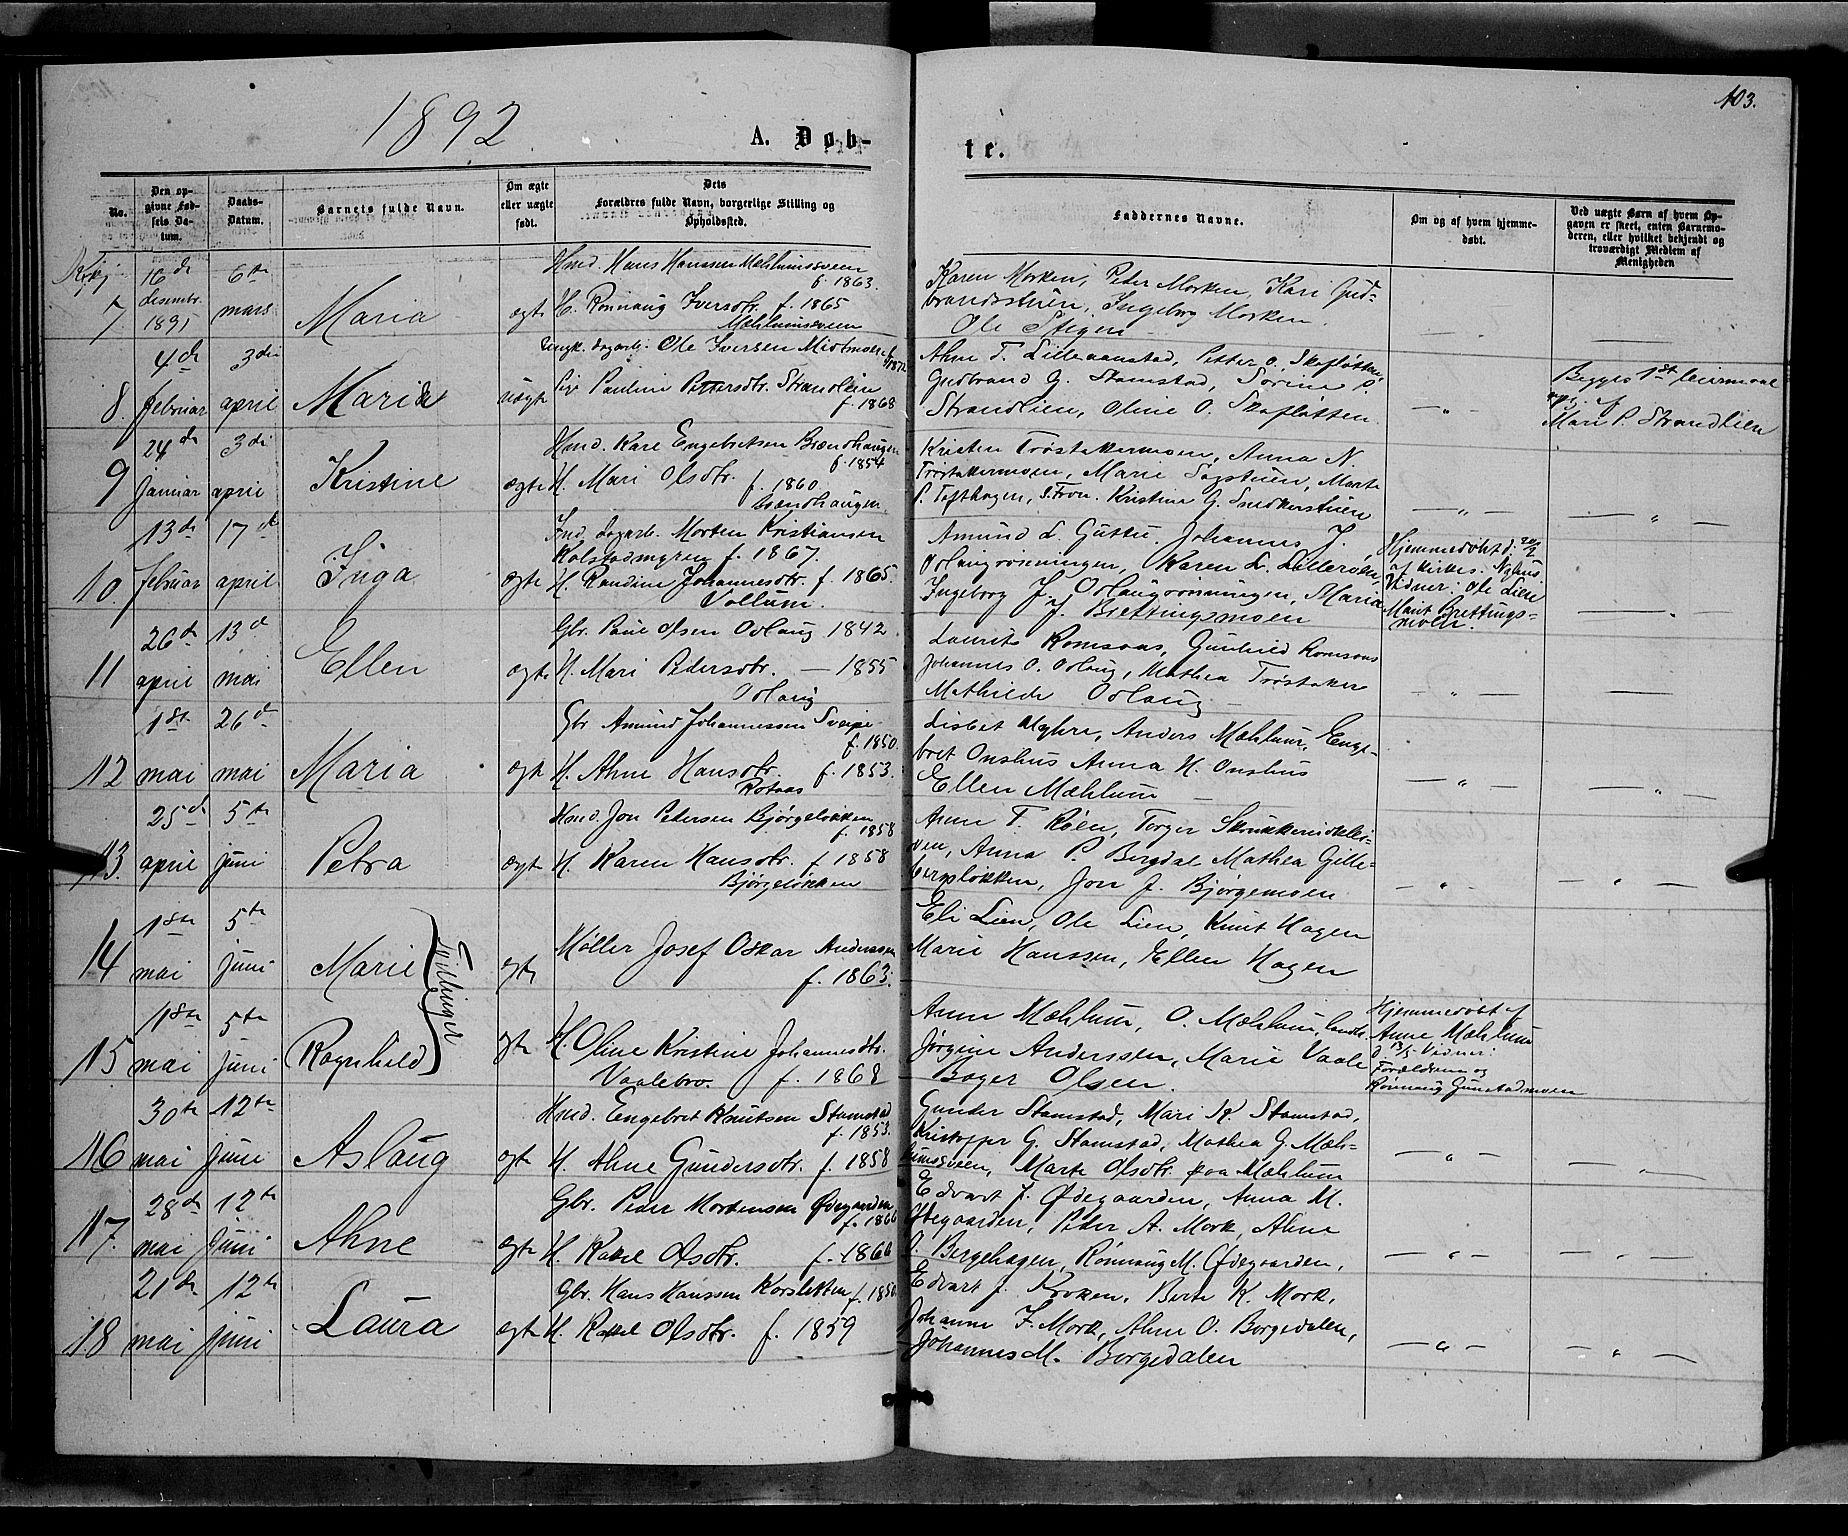 1892
A. Døb-
te.
103.
No.
Den op-
givne Fød-
sels Da-
tum.
Daabs-
Datum.
Barnets fulde Navn.
Om ægte
eller uægte
født.
Dets
Forældres fulde Navn, borgerlige Stilling og
Opholdssted.
Faddernes Navne.
Om og af hvem hjemme-
døbt.
Ved uægte Børn af hvem Op-
gaven er skeet, enten Barnemo-
deren, eller hvilket bekjendt og
troværdigt Medlem af
Menigheden
7.
16de
desembr.
1891
6te
mars
Maria
ægte
Hmd. Hans Hanssen Mæhlumssveen
f. 1863.
H. Rønnaug Iversdtr. f. 1865
Mæhlumsveen
Karen Morken, Peter Morken, Kari Gud-
brandsstuen, Ingeborg Morken.
Ole Stigen
8.
4de
februar
3die
april
Maria
uægte
Ungk. dagarb. Ole Iversen f. 1872
Pige Pauline Pettersdtr. Strandlien
f. 1868
Ahne T. Lilleaanstad, Petter O. Skofløtten,
Gudbrand G. Stamstad, Sørine P.
Strandlien, Oline O. Skofløtten.
— " —
Begges 1ste leiermaal
opg. af
Mari P. Strandlien
9
24de
januar
3die
april
Kristine
ægte
Hmd. Kare Engebretsen Brændhaugen
f. 1854
H. Mari Olsdtr. f. 1860
Brændhaugen
Kristen Trøstakermoen, Anna N.
Trøstakermoen, Marie Sagstuen, Marte
P. Tofthagen, S. Fron. Kristine G. Snedkerstuen
— " —
— " —
10.
13de
februar
17de
april
Inga
ægte
Ind. dagarb. Morten Kristiansen
Kolstadmyren f. 1867.
H. Randine Johannesdtr. f. 1865.
Vollum.
Amund L. Guttu, Johannes J.
Ingeborg J. Maria
J. Brettingsmoen
Hjemmedøbt d. 20/2
af Kirkes. Nyhus.
Vidner: Ole Lien
Marit Brettings-
moen.
— " —
11
26de
april
13de
mai
Ellen
ægte
Gbr. Paul Olsen Odlaug 1842.
H. Mari Pedersdtr. — 1855
Odlaug
Laurits Romsaas, Gunhild Romsaas
Johannes O. Odlaug, Mathea Trøstaker
Mathilde Odlaug —
— " —
— " —
12
1ste
mai
26de
mai
Maria
ægte
Gbr. Amund Johannessen Sveipe
f. 1850.
H. Ahne Hansdtr. f. 1853.
Rotaas
Lisbet Myhre, Anders Mæhlum, Enge-
bret Onshus Anna H. Onshus
Ellen Mæhlum —
— " —
— " —
13.
25de
april
5te
juni
Petra
ægte
Hmd. Jon Pedersen Bjørgeløkken
f. 1858
H. Karen Hansdtr. f. 1858
Bjørgeløkken
Anne T. Røen, Torger
Anna P. Bergdal Mathea Gille-
bergløkken, Jon J. Bjørgemoen
— " —
— " —
14
1ste
mai
5te
juni
Marie
Tvillinger
ægte
Møller Josef Oskar Anderssen
f. 1863.
Eli Lien, Ole Lien, Knut Hagen
Marie Hanssen, Ellen Hagen
15
1ste
mai
5te
juni
Ragnhild
ægte
H. Oline Kristine Johannesdtr.
Vaalebro. f. 1868
Anne Mæhlum, O. Mæhlum, landh.
Jørgine Anderssen, Marie Vaale
Olsen.
Hjemmedøbt af
Anne Mæhlum
d. 13/5 Vidner:
Forældrene og
Rønnaug Gunstadmoen
16
30te
mai
12te
juni
Aslaug
ægte
Hmd. Engebret Knutsen Stamstad
f. 1853.
H. Ahne Gundersdtr. f. 1858
Gunder Stamstad, Mari K. Stamstad,
Kristoffer G. Stamstad, Mathea G. Mæh-
lumssveen, Marte Olsdtr. paa Mæhlum
— " —
— " —
17.
28de
mai
12te
juni
Ahne
ægte
Gbr. Peder Mortensen Ødegaarden
f. 1866
H. Rakel Olsdtr. f. 1866
Edvart J. Ødegaarden, Anna M.
Ødegaarden, Peder A. Mork, Ahne
O. Bergehagen, Rønnaug M. Ødegaarden,
— " —
— " —
18
21de
mai
12te
juni
Laura
ægte
Gbr. Hans Hanssen Korsletten f. 1850
H. Rakel Olsdtr. f. 1859
Edvart J. Kroken, Berte K. Mork,
Johanne F. Mork, Ahne O. Borgedalen,
Johannes M. Borgedalen
— " —
— " —